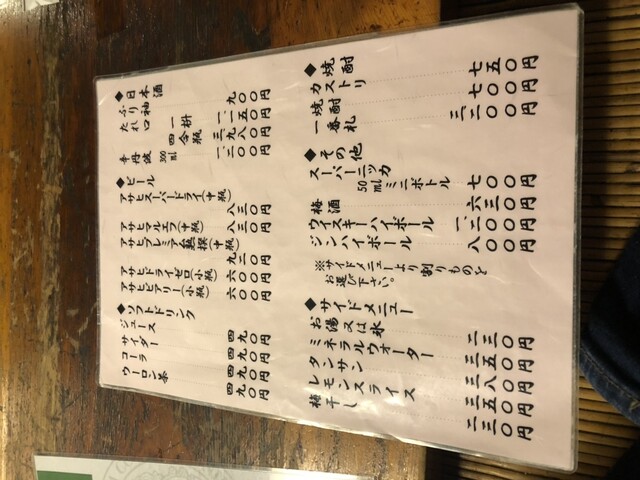 ◆焼酎
カストリ 七五〇円
焼酎 七〇〇円
一番札 三、二〇〇円
◆その他
スーパーニッカ
50mlミニボトル 七〇〇円
梅酒 六三〇円
ウイスキーハイボール 一、二〇〇円
ジンハイボール 八〇〇円
※サイドメニューより割りものを
お選び下さい。
◆サイドメニュー
お湯又は氷 二三〇円
ミネラルウォーター 三五〇円
タンサン 三八〇円
レモンスライス 三五〇円
梅干し 二三〇円
◆日本酒
ふり袖 九〇〇円
たれ口 一枡 一、一五〇円
四合瓶 三、九八〇円
辛丹波 300ml 一、二〇〇円
◆ビール
アサヒスーパードライ(中瓶)
八三〇円
アサヒマルエフ(中瓶) 八三〇円
アサヒプレミア熟撰(中瓶)
九二〇円
アサヒドライゼロ(小瓶) 六〇〇円
アサヒビアリー(小瓶) 六〇〇円
◆ソフトドリンク
ジュース 四九〇円
サイダー 四九〇円
コーラ 四九〇円
ウーロン茶 四九〇円